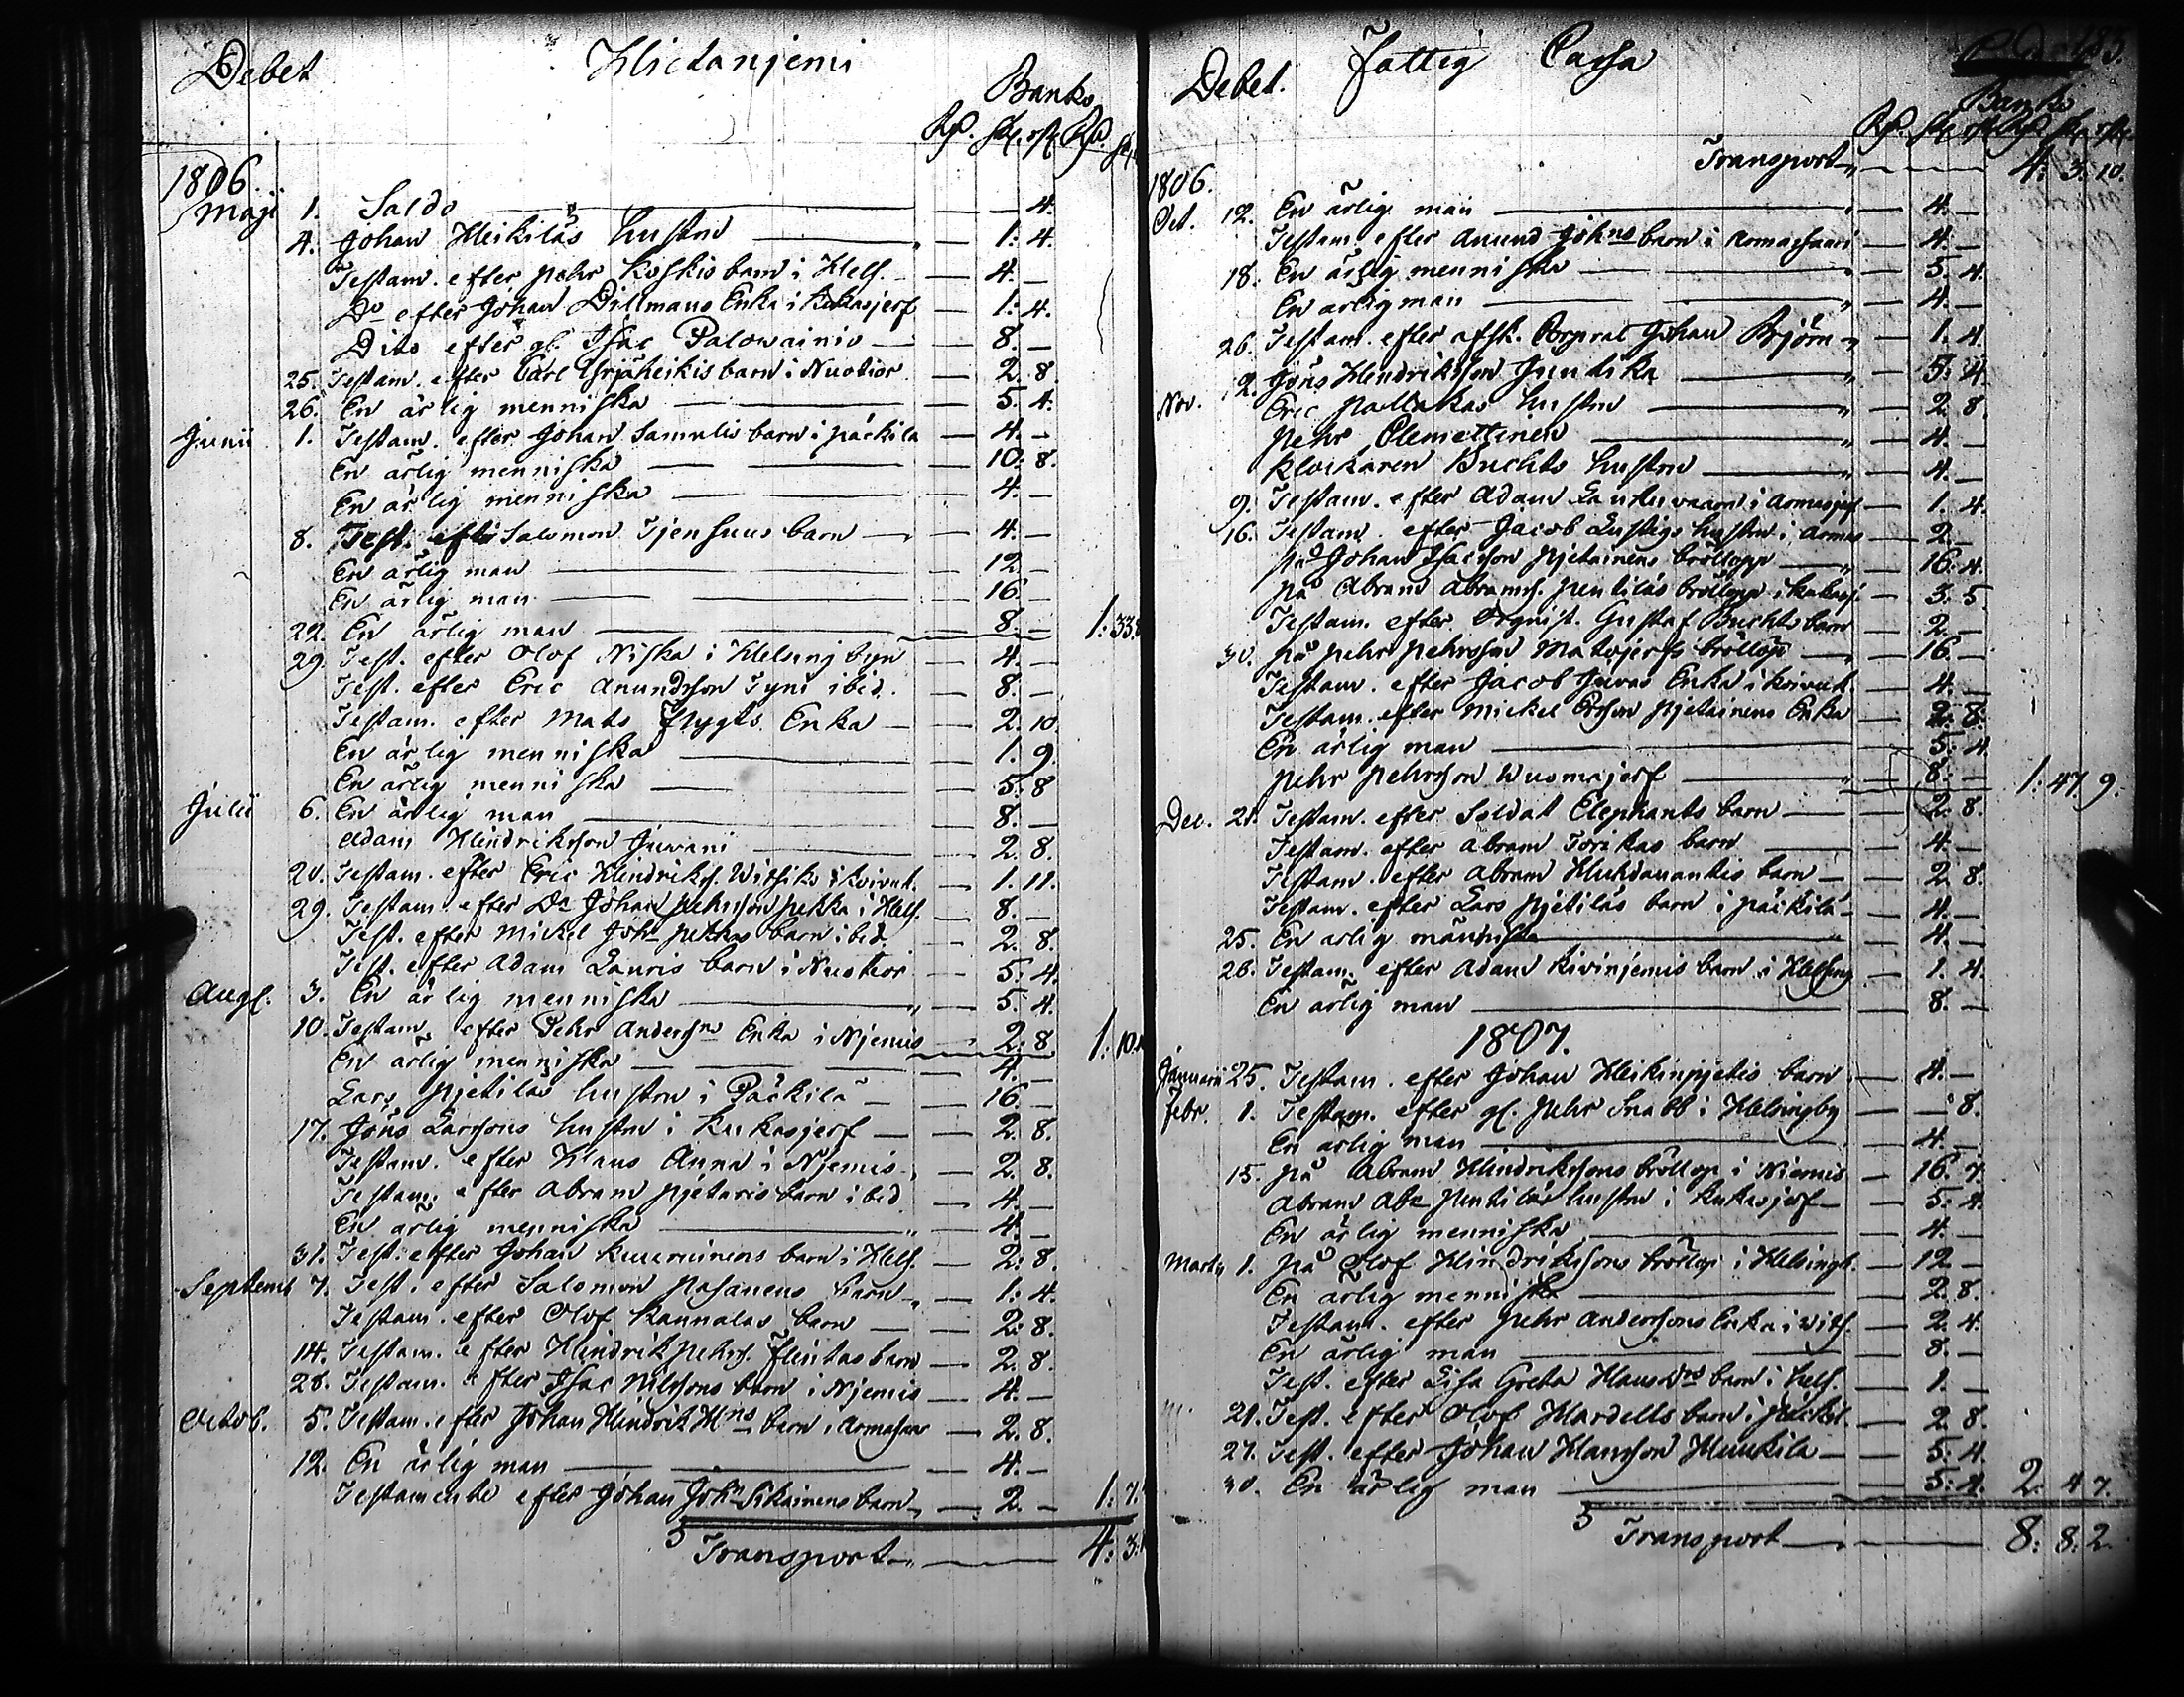 Debet Hietanjemi
Banko
Rd. sk. rst. Rd. sk.
1806.
Maji 1. Saldo — 4.
4. Johan Heikiläs hustru — 1: 4.
Testam. efter Pehr Koskis barn i Hels. — 4. —
Do efter Johan Dillmans Enka i Kukasjerf — 1: 4.
Dito efter gl. Isac Palowainio — 8. —
25. Testam. efter Carl Yrjäheikis barn i Nuotior — 2. 8.
26. En ärlig menniska — 5. 4.
Junii 1. Testam. efter Johan Samulis barn i Päckila — 4. —
En ärlig menniska — 10: 8.
En ärlig menniska — 4. —
8. Test. efter Salomon Tjensuus barn — 4. —
En ärlig man — 12 —
En ärlig man — 16. —
22. En ärlig man — 8. — 1: 33.
29. Test. efter Olof Niska i Helsing byn — 4. —
Test. efter Eric Anundsson Tyni ibid. — 8. —
Testam. efter Mats Flygts Enka — 2. 10.
En ärlig menniska — 1. 9.
En ärlig menniska — 5: 8
Julii 6. En ärlig man — 8. —
Adam Hindriksson Juwani — 2. 8.
20. Testam. efter Eric Hindrikss. Witsiks i Koivuk. — 1. 11.
29. Testam. efter Dr Johan Pehrsson Pekka i Hels. — 8. —
Test. efter Mickel Johs Pekkas barn ibid. — 2. 8.
Test. efter Adam Lauris barn i Nuotior — 5: 4.
Aug. 3. En ärlig menniska — 5: 4.
10. Testam. efter Pehr Anderssns Enka i Njemis — 2: 8 1: 10.
En ärlig menniska — 4. —
Lars Pjetiläs hustru i Päckilä — 16 —
17. Jöns Larssons hustru i Kukasjerf — 2. 8.
Testam. efter Klaus Anna i Njemis — 2. 8.
Testam. efter Abram Pjetaris barn ibid. — 4. —
En ärlig menniska — 4. —
31. Test. efter Johan Kuurninens barn i Hels. — 2: 8.
Septemb 7. Test. efter Salomon Pasanens barn — 1: 4.
Testam. efter Olof Kannalas barn — 2: 8.
14. Testam. efter Hindrik Pehrs. Flintas barn — 2. 8.
28. Testam. efter Isac Nilssons barn i Njemis — 4. —
Octob. 5. Testam. efter Johan Hindrik Hns barn i Armasaar — 2. 8.
12. En ärlig man — 4. —
Testamente efter Johan Johs Sikainens barn — 2. — 1: 7.
Transport — 4: 3:
Debet. Fattig Cassa 183.
Banko
Rd. sk. rst. Rd. sk. rst.
Transport — 4: 3: 10.
1806.
Oct. 12. En ärlig man — 4. —
Testam. efter Anund Johns barn i Armassaari — 4. —
18. En ärlig menniska — 5. 4.
En ärlig man — 4. —
26. Testam. efter afsk. Corporal Johan Björn — 1. 4.
Nov. 2. Jöns Hendriksson Juntika — 5: 4
Eric Pallukas hustru — 2. 8.
Pehr Clemettinen — 4. —
Klockaren Buchts hustru — 4. —
9. Testam. efter Adam i Armasjerf — 1. 4.
16. Testam. efter Jacob Lustigs hustru i Armas — 2 —
på Johan Isacsson Pjetainens bröllopp — 16: 4.
på Abram Abramss. Pentiläs bröllopp i — 3. 5.
Testam. efter Organist. Gustaf Buchts barn — 2. —
30. på Pehr Pehrsson Matojerfs bröllop — 16. —
Testam. efter Jacob Juvas Enka i Koivuk. — 4. —
Testam. efter Mickel Ersson Pjetainens Enka — 2: 8.
En ärlig man — 5: 4.
Pehr Pehrsson Wuomajerf — 8. — 1: 47 9.
Dec. 21. Testam. efter Soldat Elephants barn — 2. 8.
Testam. efter Abram Törikas barn — 4. —
Testam. efter Abram Huhdanantis barn — 2 8.
Testam. efter Lars Pjetiläs barn i Päckilä — 4. —
25. En ärlig människa — 4. —
26. Testam. efter Adam Kivinjemis barn i Helsing — 1. 4.
En ärlig man — 8. —
1807.
Januarii 25. Testam. efter Johan Heikinpjetis barn — 4. —
Febr. 1. Testam. efter gl. Pehr Snabb i Helsingby — — 8.
En ärlig man — 4. —
15. på Abram Hindrikssons bröllop i Niemis — 16. 7.
Abram Abr Pentiläs hustru i Kukasjerf — 5: 4.
En ärlig menniska — 4. —
Marty 1. på Olof Hindrikssons bröllop i Helsingb. — 12 —
En ärlig menniska — 2. 8.
Testam. efter Pehr Anderssons Enka i Wits. — 2. 4.
En ärlig man — 8. —
Test. efter Lisa Greta Hansdrs barn i Hels. — 1. —
21. Test. efter Olof Mardells barn i Päckil. — 2 8.
27. Test. efter Johan Hansson Hunkila — 5: 4.
30. En ärlig man — 5: 4. 2: 4 7.
Transport — 8: 8: 2.